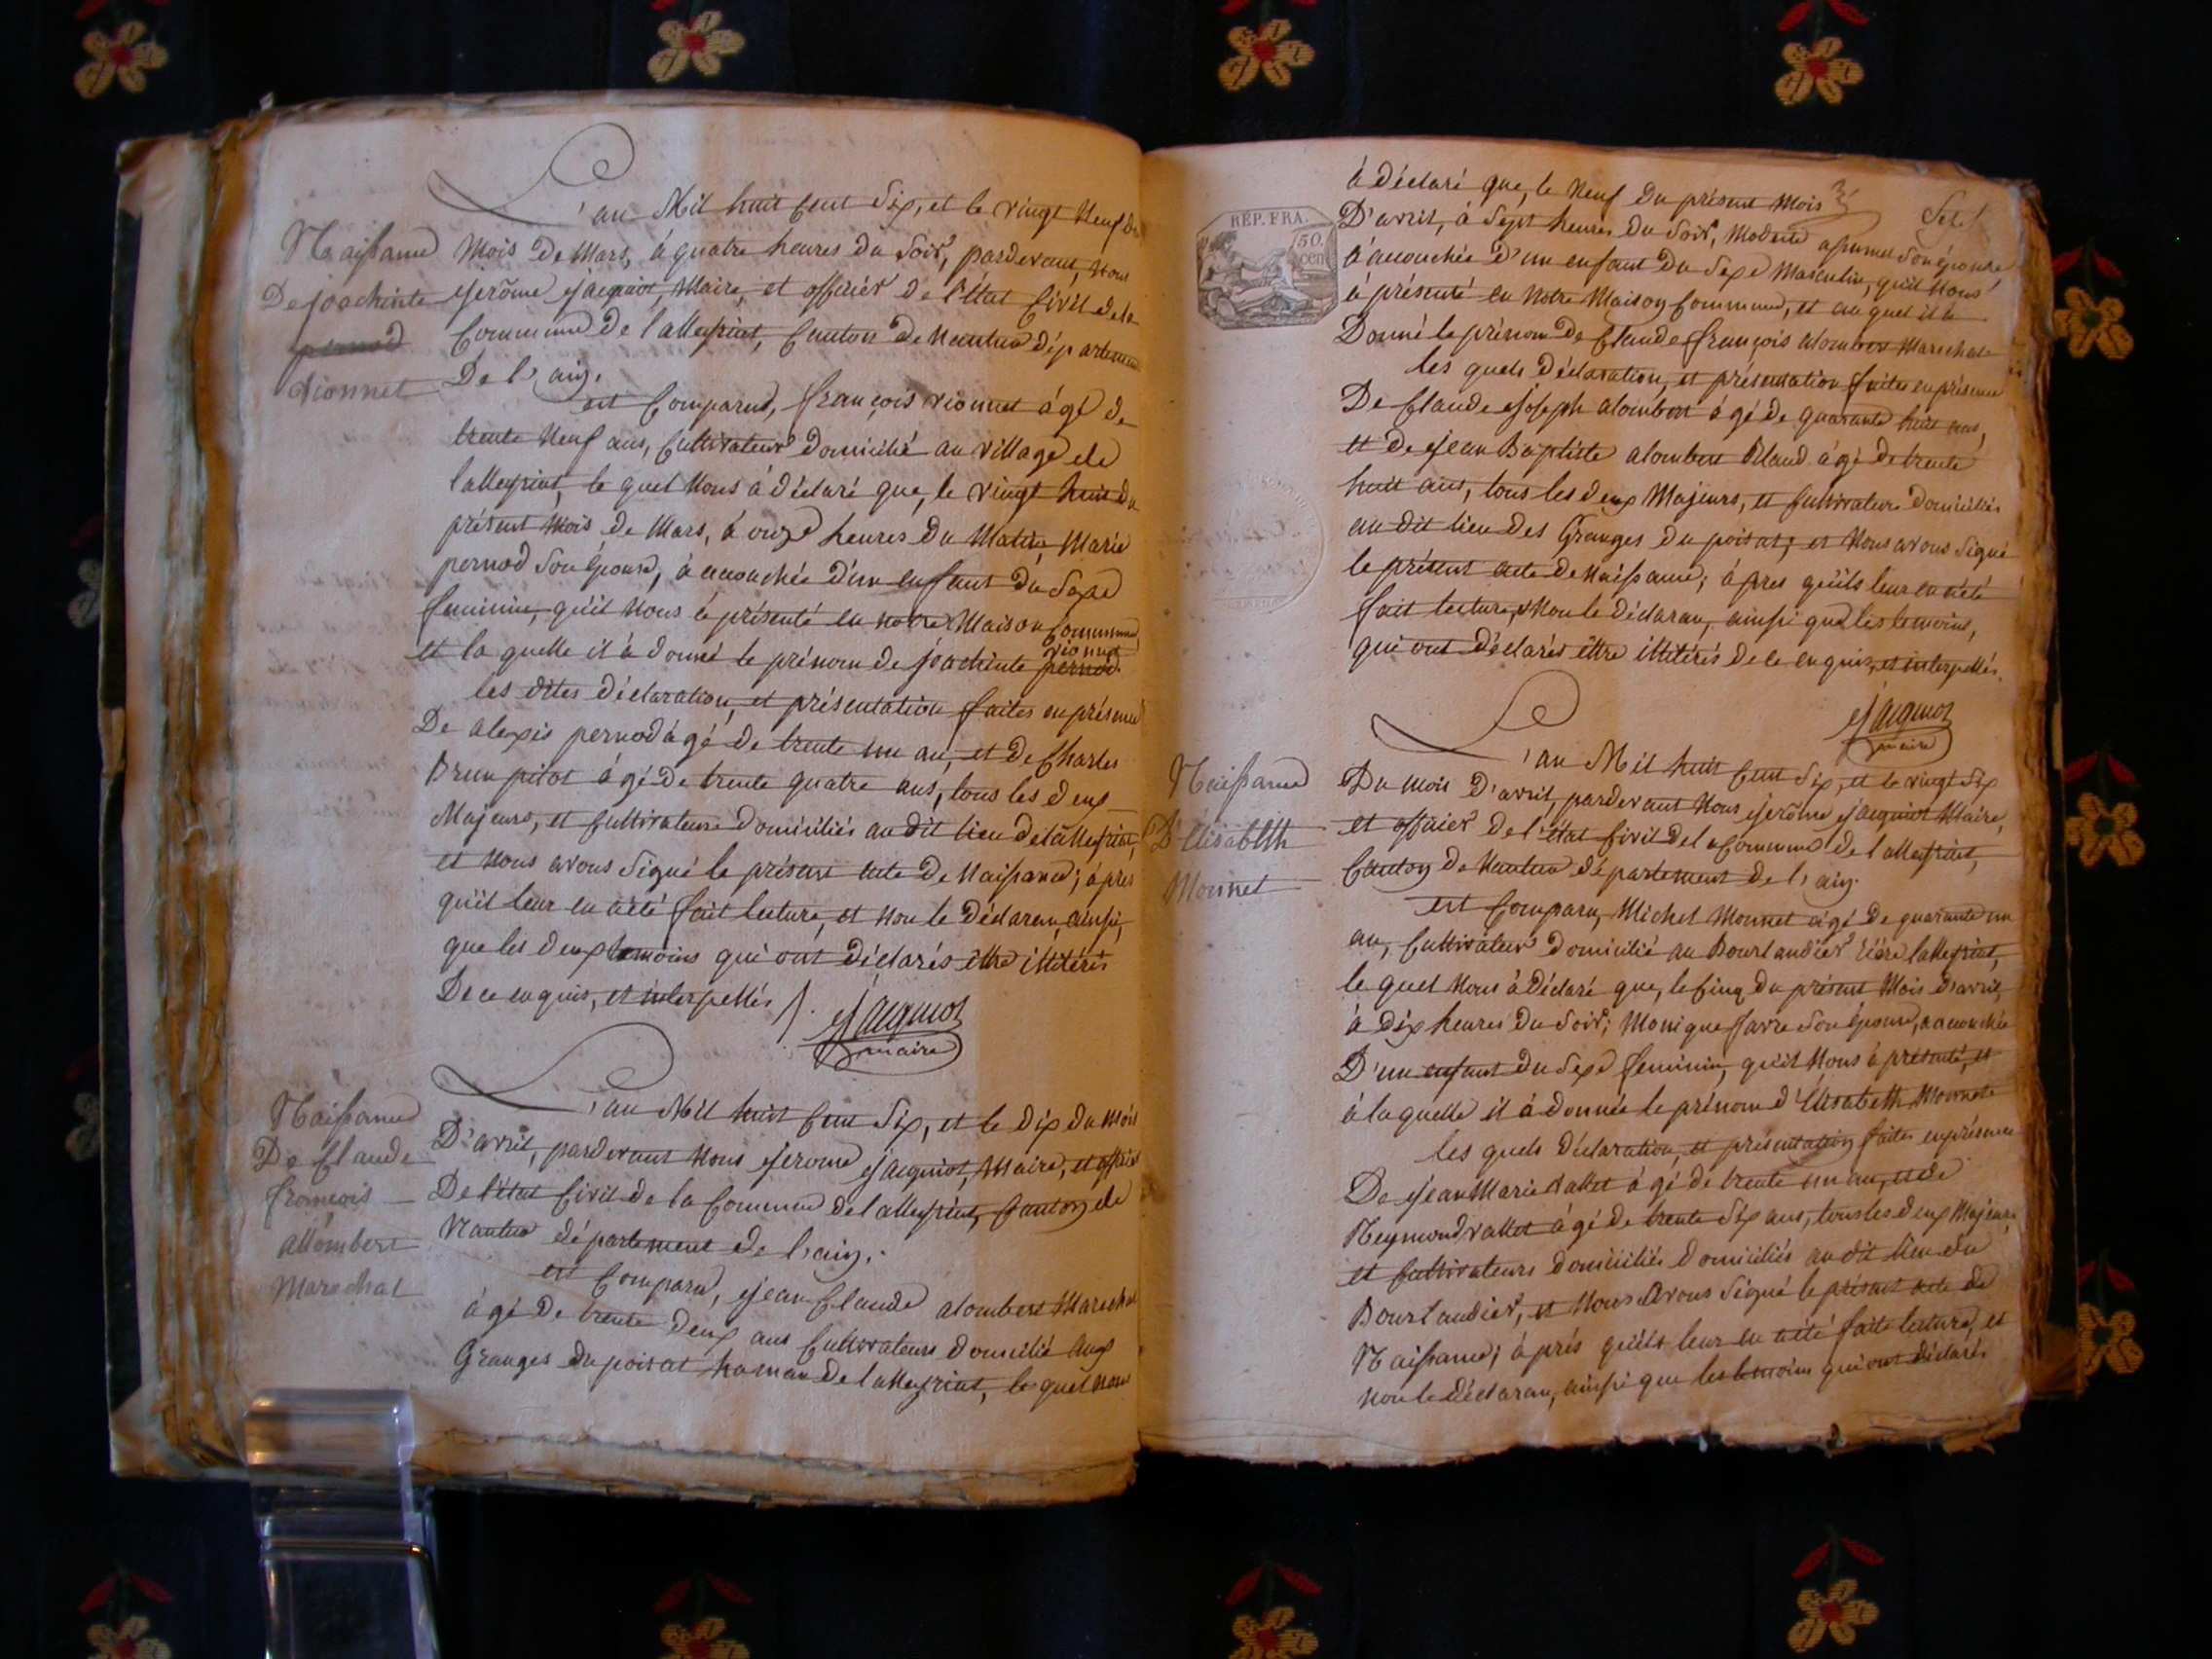 L'an Mil huit Cent Six, et le vingt Neuf du
Naissance
De joachinte
pernod
vionnet
Mois De Mars, à quatre heures du Soir, pardevant, Nous
Jerôme Jacquiot, Maire, et officier de l'État Civil de la
Commune de lalleyriat, Canton de Nantua département
De l'ain.
est Comparus, françois vionnet âgé de
trente Neuf ans, Cultivateur domicilié au village de
lalleyriat, le quel Nous à déclaré que, le vingt huit du
présent Mois de Mars, à onze heures du Matin, Marie
pernod Son épouse, à accouchée d'un enfant du Sexe
feminin, qu'il Nous à présenté en notre Maison Commune
et la quelle il à donné le prénom de joachinte pernod vionnet
les dites déclaration, et présentation faites en présence
De alexis pernod âgé de trente un an, et de Charles
Brun pitot âgé de trente quatre ans, tous les deux
Majeurs, et Cultivateurs domiciliés au dit lieu de lalleyriat,
et Nous avons Signé le présent acte de Naissance; àpres
qu'il leur en à été fait lecture, et Non le déclaran, ainsi,
que les deux temoins qui ont déclarés être illitérés
De ce enquis, et interpellés
Jacquiot
maire
L'an Mil huit Cent Six, et le Dix du Mois
Naissance
De Claude
françois
allombert
Marechal
D'avril, pardevant Nous Jerome Jacquiot, Maire, et officier
De l'état Civil de la Commune de lalleyriat, Canton de
Nantua département de l'ain.
est Comparu, Jean Claude alombert Marechal
âgé De trente deux ans Cultivateurs domicilié aux
Granges du poisat hamau de lalleyriat, le quel Nous
à déclaré que, le Neuf du présent Mois
REP. FRA.
50.
cen
D'avril, à Sept heures du Soir, Modeste Son épouse
à accouchée d'un enfant du Sexe Masculin, qu'il Nous
à présenté en Notre Maison Commune, et au quel il à
Donné le prénom de Claude françois alombert Marechal
les quels déclaration, et présentation faites en présence
De Claude Joseph alombert âgé de quarante huit ans,
et de Jean Baptiste alombert Biland âgé de trente
huit ans, tous les deux Majeurs, et Cultivateurs domiciliés
au dit lieu des Granges du poisat; et Nous avons Signé
le présent acte de Naissance; àpres qu'ils leur en à été
fait lecture, Non le déclaran, ainsi que les temoins,
qui ont déclarés être illitérés de ce enquis, et interpellés.
Jacquiot
maire
L'an Mil huit Cent Six, et le vingt Six
Naissance
D'Elisabeth
Monnet
Du mois d'avril, pardevant Nous, Jerôme Jacquiot Maire,
et officier de l'état Civil de la Commune de lalleyriat,
Canton de Nantua département de l'ain.
est Comparu, Michel Monnet âgé de quarante un
an, Cultivateur domicilié au Bourlandier rière lalleyriat,
le quel Nous à déclaré que, le Cinq du présent Mois d'avril,
à dix heures du Soir, Monique favre Son épouse, a accouchée
D'un enfant du Sexe feminin, qu'il Nous à présenté, et
à la quelle il à donnée le prénom d'Elisabeth Monnet
les quels déclaration, et présentation faites en présence
De Jean Marie vallet âgé de trente un an, et de
Reymond vallet âgé de trente Six ans, tous les deux Majeurs,
et Cultivateurs domiciliés domiciliés au dit lieu du
Bourlandier, et Nous avons Signé le présent acte de
Naissance; àprés qu'ils leur en à été fait lecture, et
Non le déclaran, ainsi que les temoins qui ont déclarés